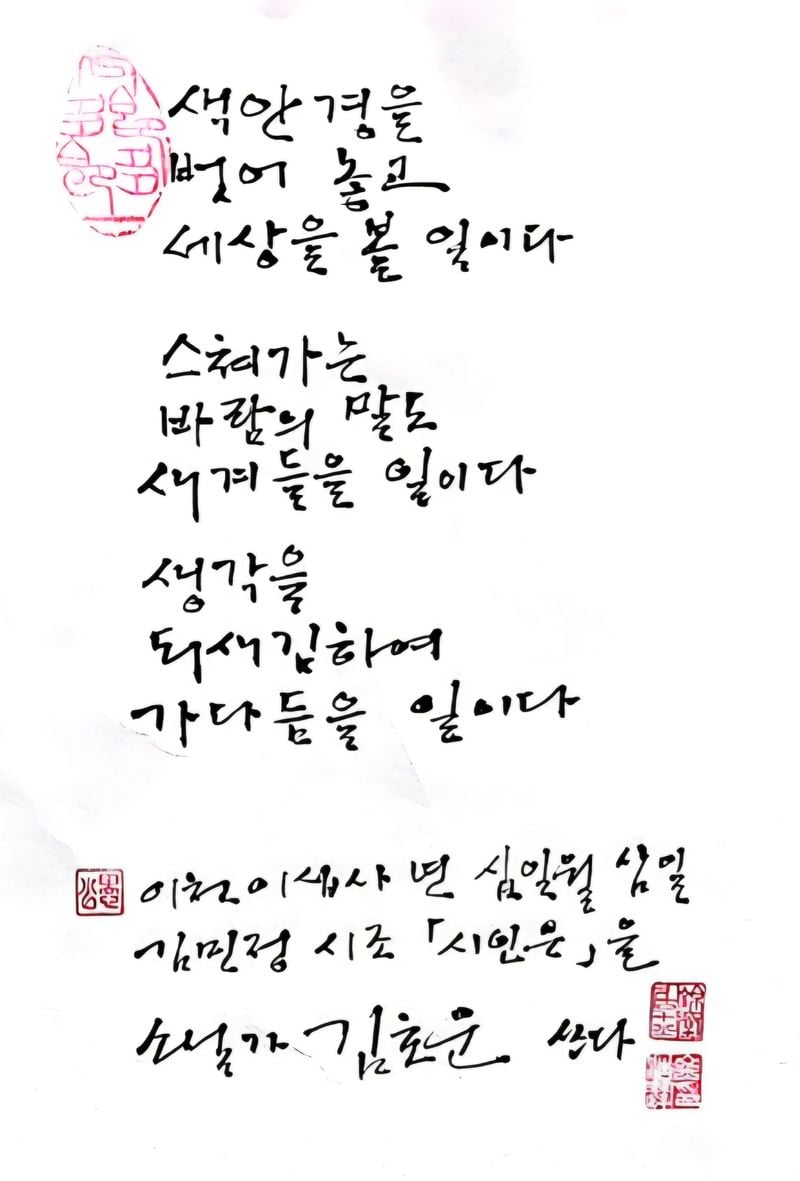 색안경을
벗어 놓고
세상을 볼 일이다
스쳐가는
바람의 말도
새겨들을 일이다
생각을
되새김하여
가다듬을 일이다
이천이십사년 십일월 삼일
김민정 시조 「시인은」을
소설가 김호운 쓰다